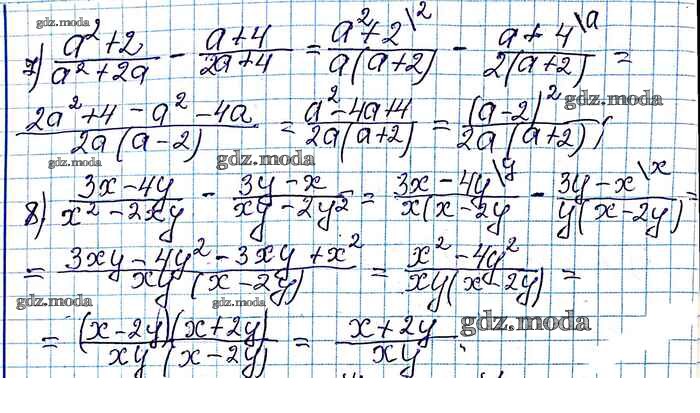 gdz.moda
7) (a² + 2)/(a² + 2a) - (a + 4)/(2a + 4) = (a² + 2 \2)/(a(a + 2)) - (a + 4 \a)/(2(a + 2)) =
(2a² + 4 - a² - 4a)/(2a(a - 2)) = (a² - 4a + 4)/(2a(a + 2)) = (a - 2)²/(2a(a + 2));
gdz.moda
gdz.moda
8) (3x - 4y)/(x² - 2xy) - (3y - x)/(xy - 2y²) = (3x - 4y \y)/(x(x - 2y) - (3y - x \x)/(y(x - 2y)) =
= (3xy - 4y² - 3xy + x²)/(xy(x - 2y)) = (x² - 4y²)/(xy(x - 2y)) =
gdz.moda
gdz.moda
= ((x - 2y)(x + 2y))/(xy(x - 2y)) = (x + 2y)/(xy);
gdz.moda